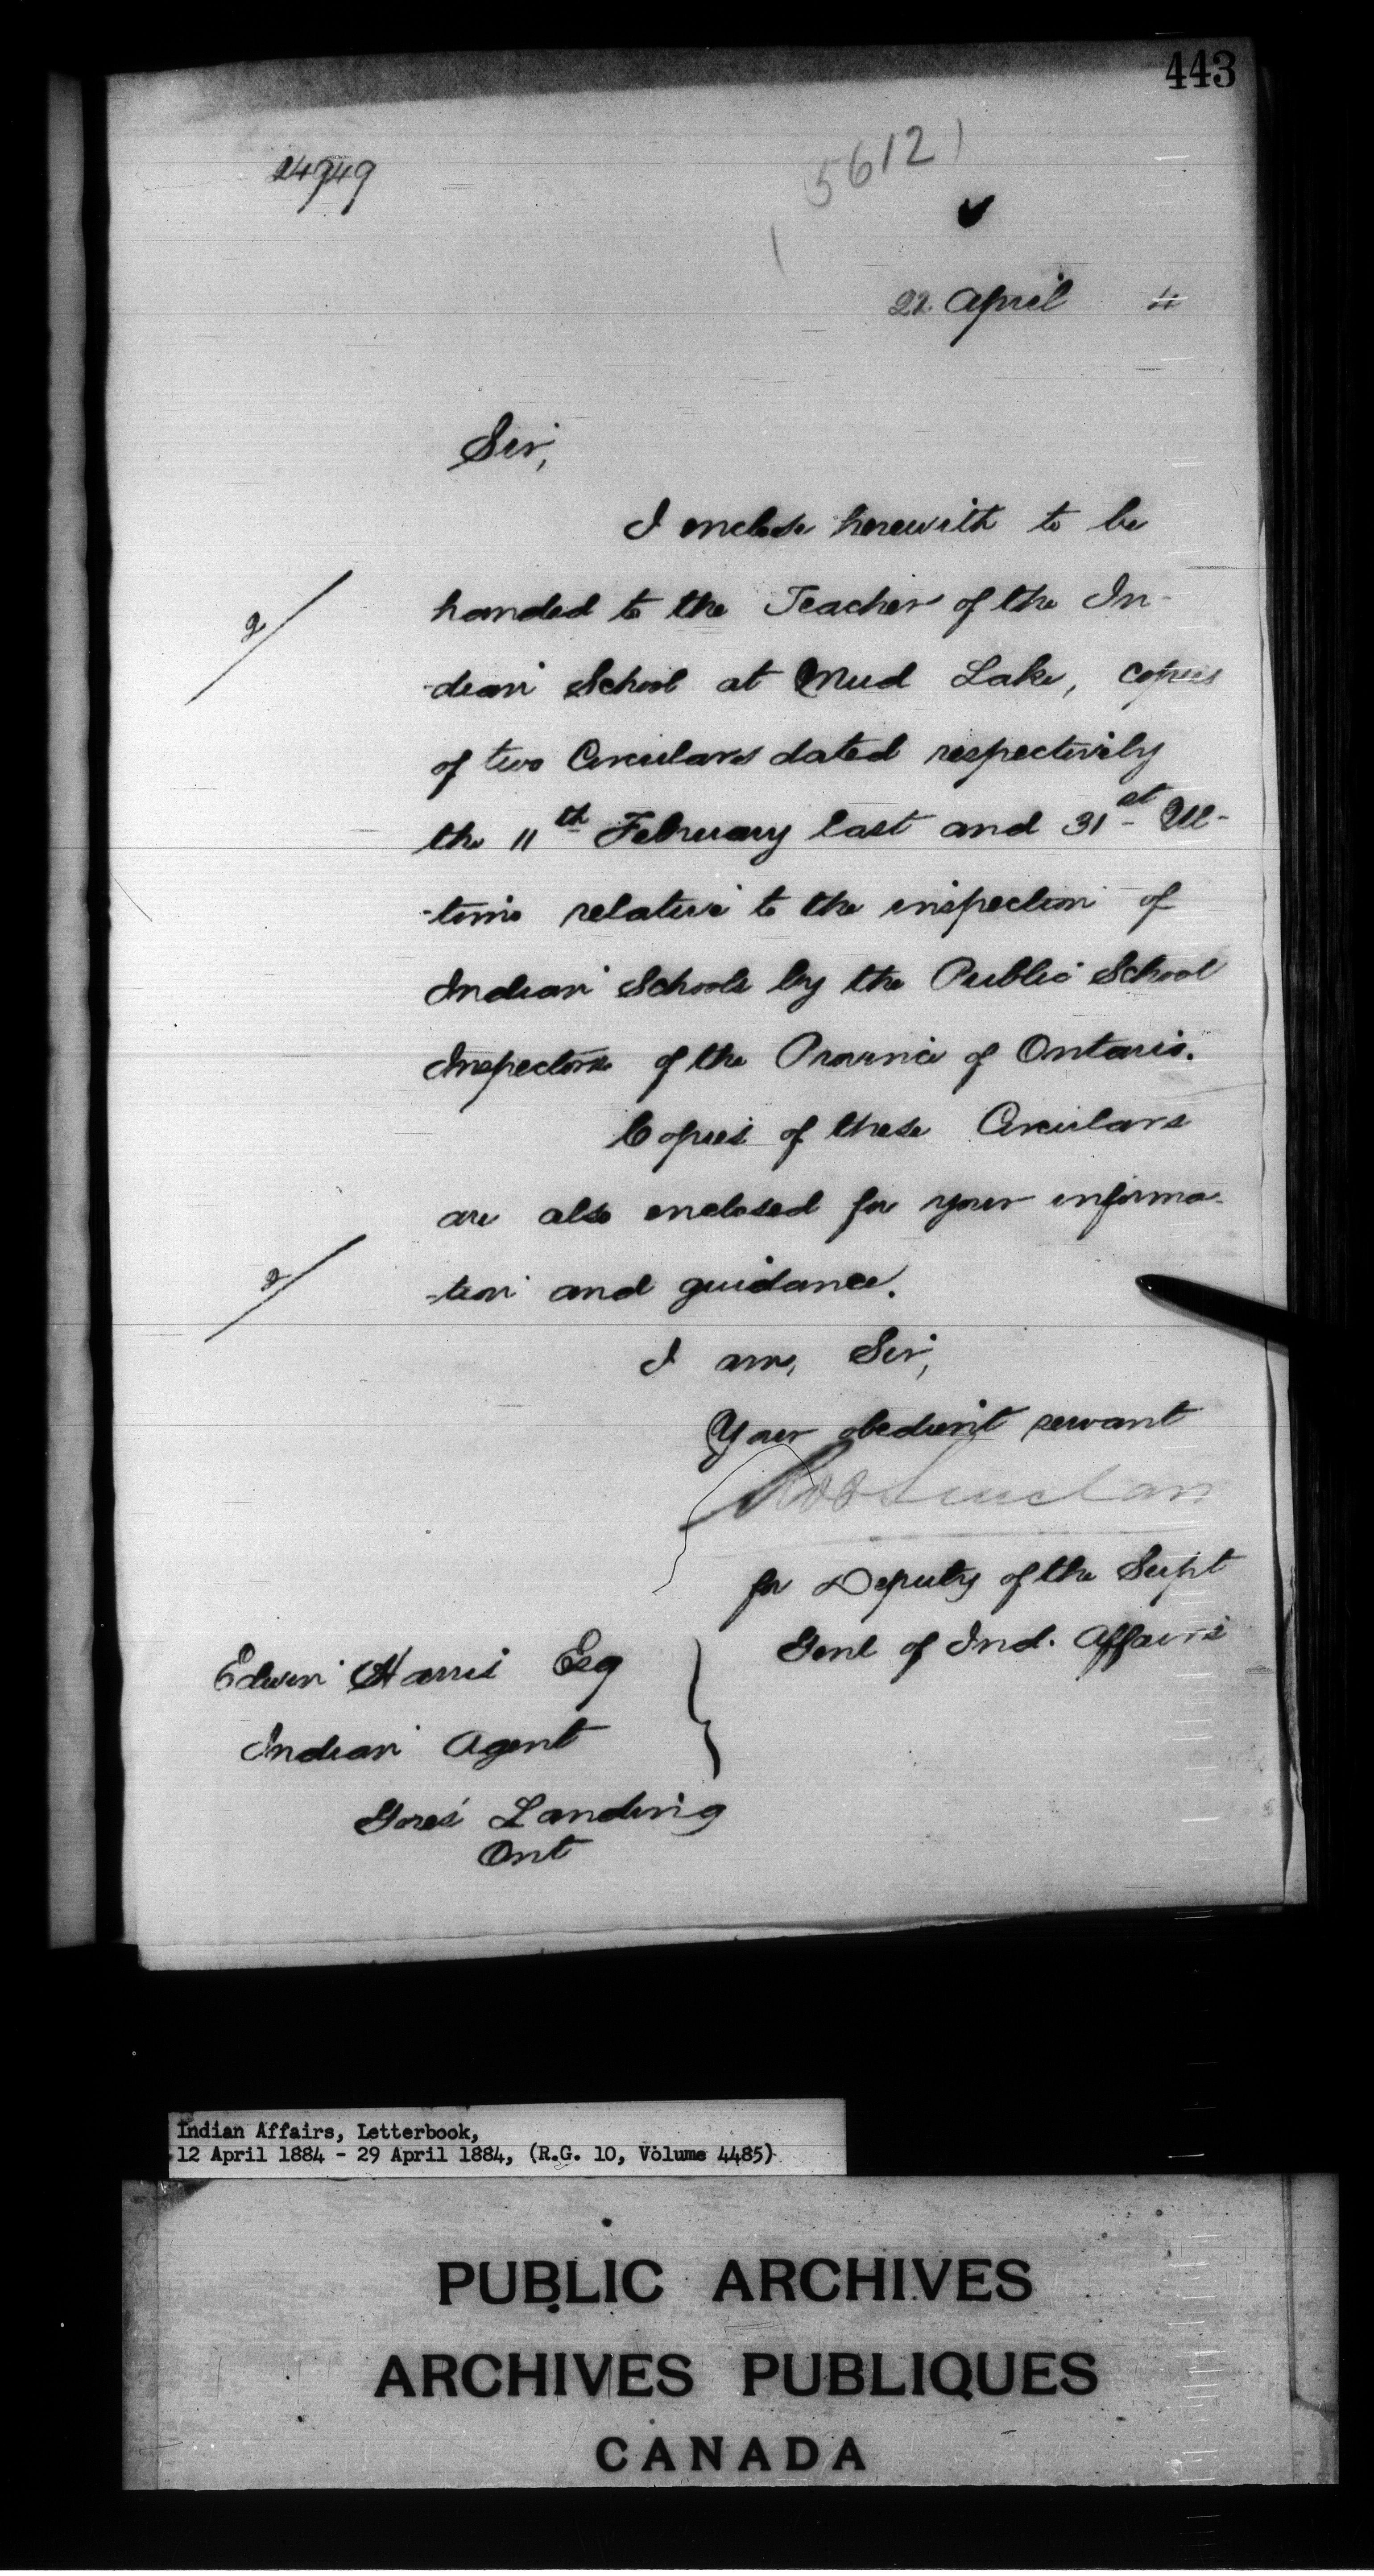 443
14949
5612
22 April 4
Sir,
I enclose herewith to be
handed to the Teacher of the In-
-dian School at Mud Lake, copies
of two Circulars dated respectively
the 11th February last and 31st Ul-
-timo relative to the inspection of
Indian Schools by the Public School
Inspectors of the Province of Ontario.
Copies of these Circulars
are also enclosed for your informa-
-tion and guidance.
2
2
I am, Sir,
Your obedient servant
Sinclair
for Deputy of the Supt
Genl of Ind. Affairs
Edwin Harris Esq
Indian Agent
Gores Landing
Ont
Indian Affairs, Letterbook,
12 April 1884 - 29 April 1884, (R.G. 10, Volume 4485)
PUBLIC ARCHIVES
ARCHIVES PUBLIQUES
CANADA